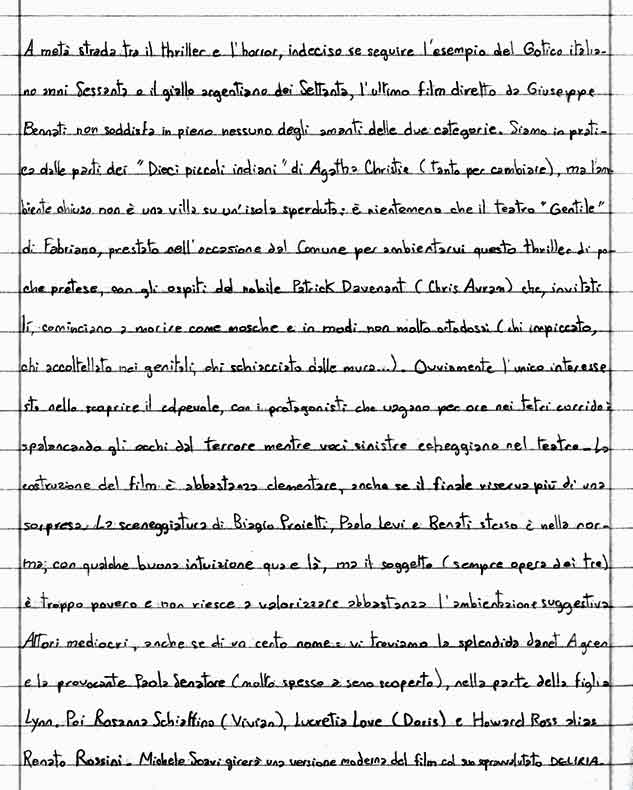 A metà strada tra il thriller e l'horror, indeciso se seguire l'esempio del Gotico italia-
no anni Sessanta o il giallo argentiano dei Settanta, l'ultimo film diretto da Giuseppe
Bennati non soddisfa in pieno nessuno degli amanti delle due categorie. Siamo in prati-
ca dalle parti dei "Dieci piccoli indiani" di Agatha Christie (tanto per cambiare), ma l'am
biente chiuso non è una villa su un'isola sperduta: è nientemeno che il teatro "Gentile"
di Fabriano, prestato nell'occasione dal Comune per ambientarvi questo thriller di po-
che pretese, con gli ospiti del nobile Patrick Davenant (Chris Avram) che, invitati
lì, cominciano a morire come mosche e in modi non molto ortodossi (chi impiccato,
chi accoltellato nei genitali, chi schiacciato dalle mura...). Ovviamente l'unico interesse
sta nello scoprire il colpevole, con i protagonisti che vagano per ore nei tetri corridoi
spalancando gli occhi dal terrore mentre voci sinistre echeggiano nel teatro. La
costruzione del film è abbastanza elementare, anche se il finale riserva più di una
sorpresa. La sceneggiatura di Biagio Proietti, Paolo Levi e Benati stesso è nella nor-
ma; con qualche buona intuizione qua e là, ma il soggetto (sempre opera dei tre)
è troppo povero e non riesce a valorizzare abbastanza l'ambientazione suggestiva
Attori mediocri, anche se di un certo nome: vi troviamo la splendida Janet Agren
e la provocante Paola Senatore (molto spesso a seno scoperto), nella parte della figlia
Lynn. Poi Rosanna Schiaffino (Vivian), Lucretia Love (Doris) e Howard Ross alias
Renato Rossini. Michele Soavi girerà una versione moderna del film col suo sopravvalutato DELIRIA.